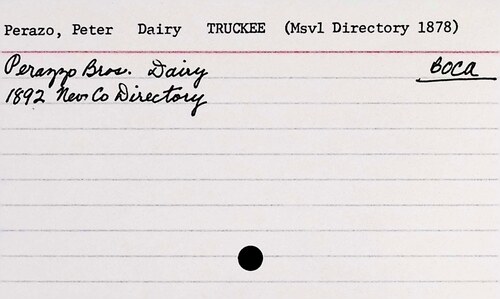 Perazo, Peter Dairy TRUCKEE (Msvl Directory 1878)
Perazzo Bros. Dairy BOCA
1892 Nev Co Directory